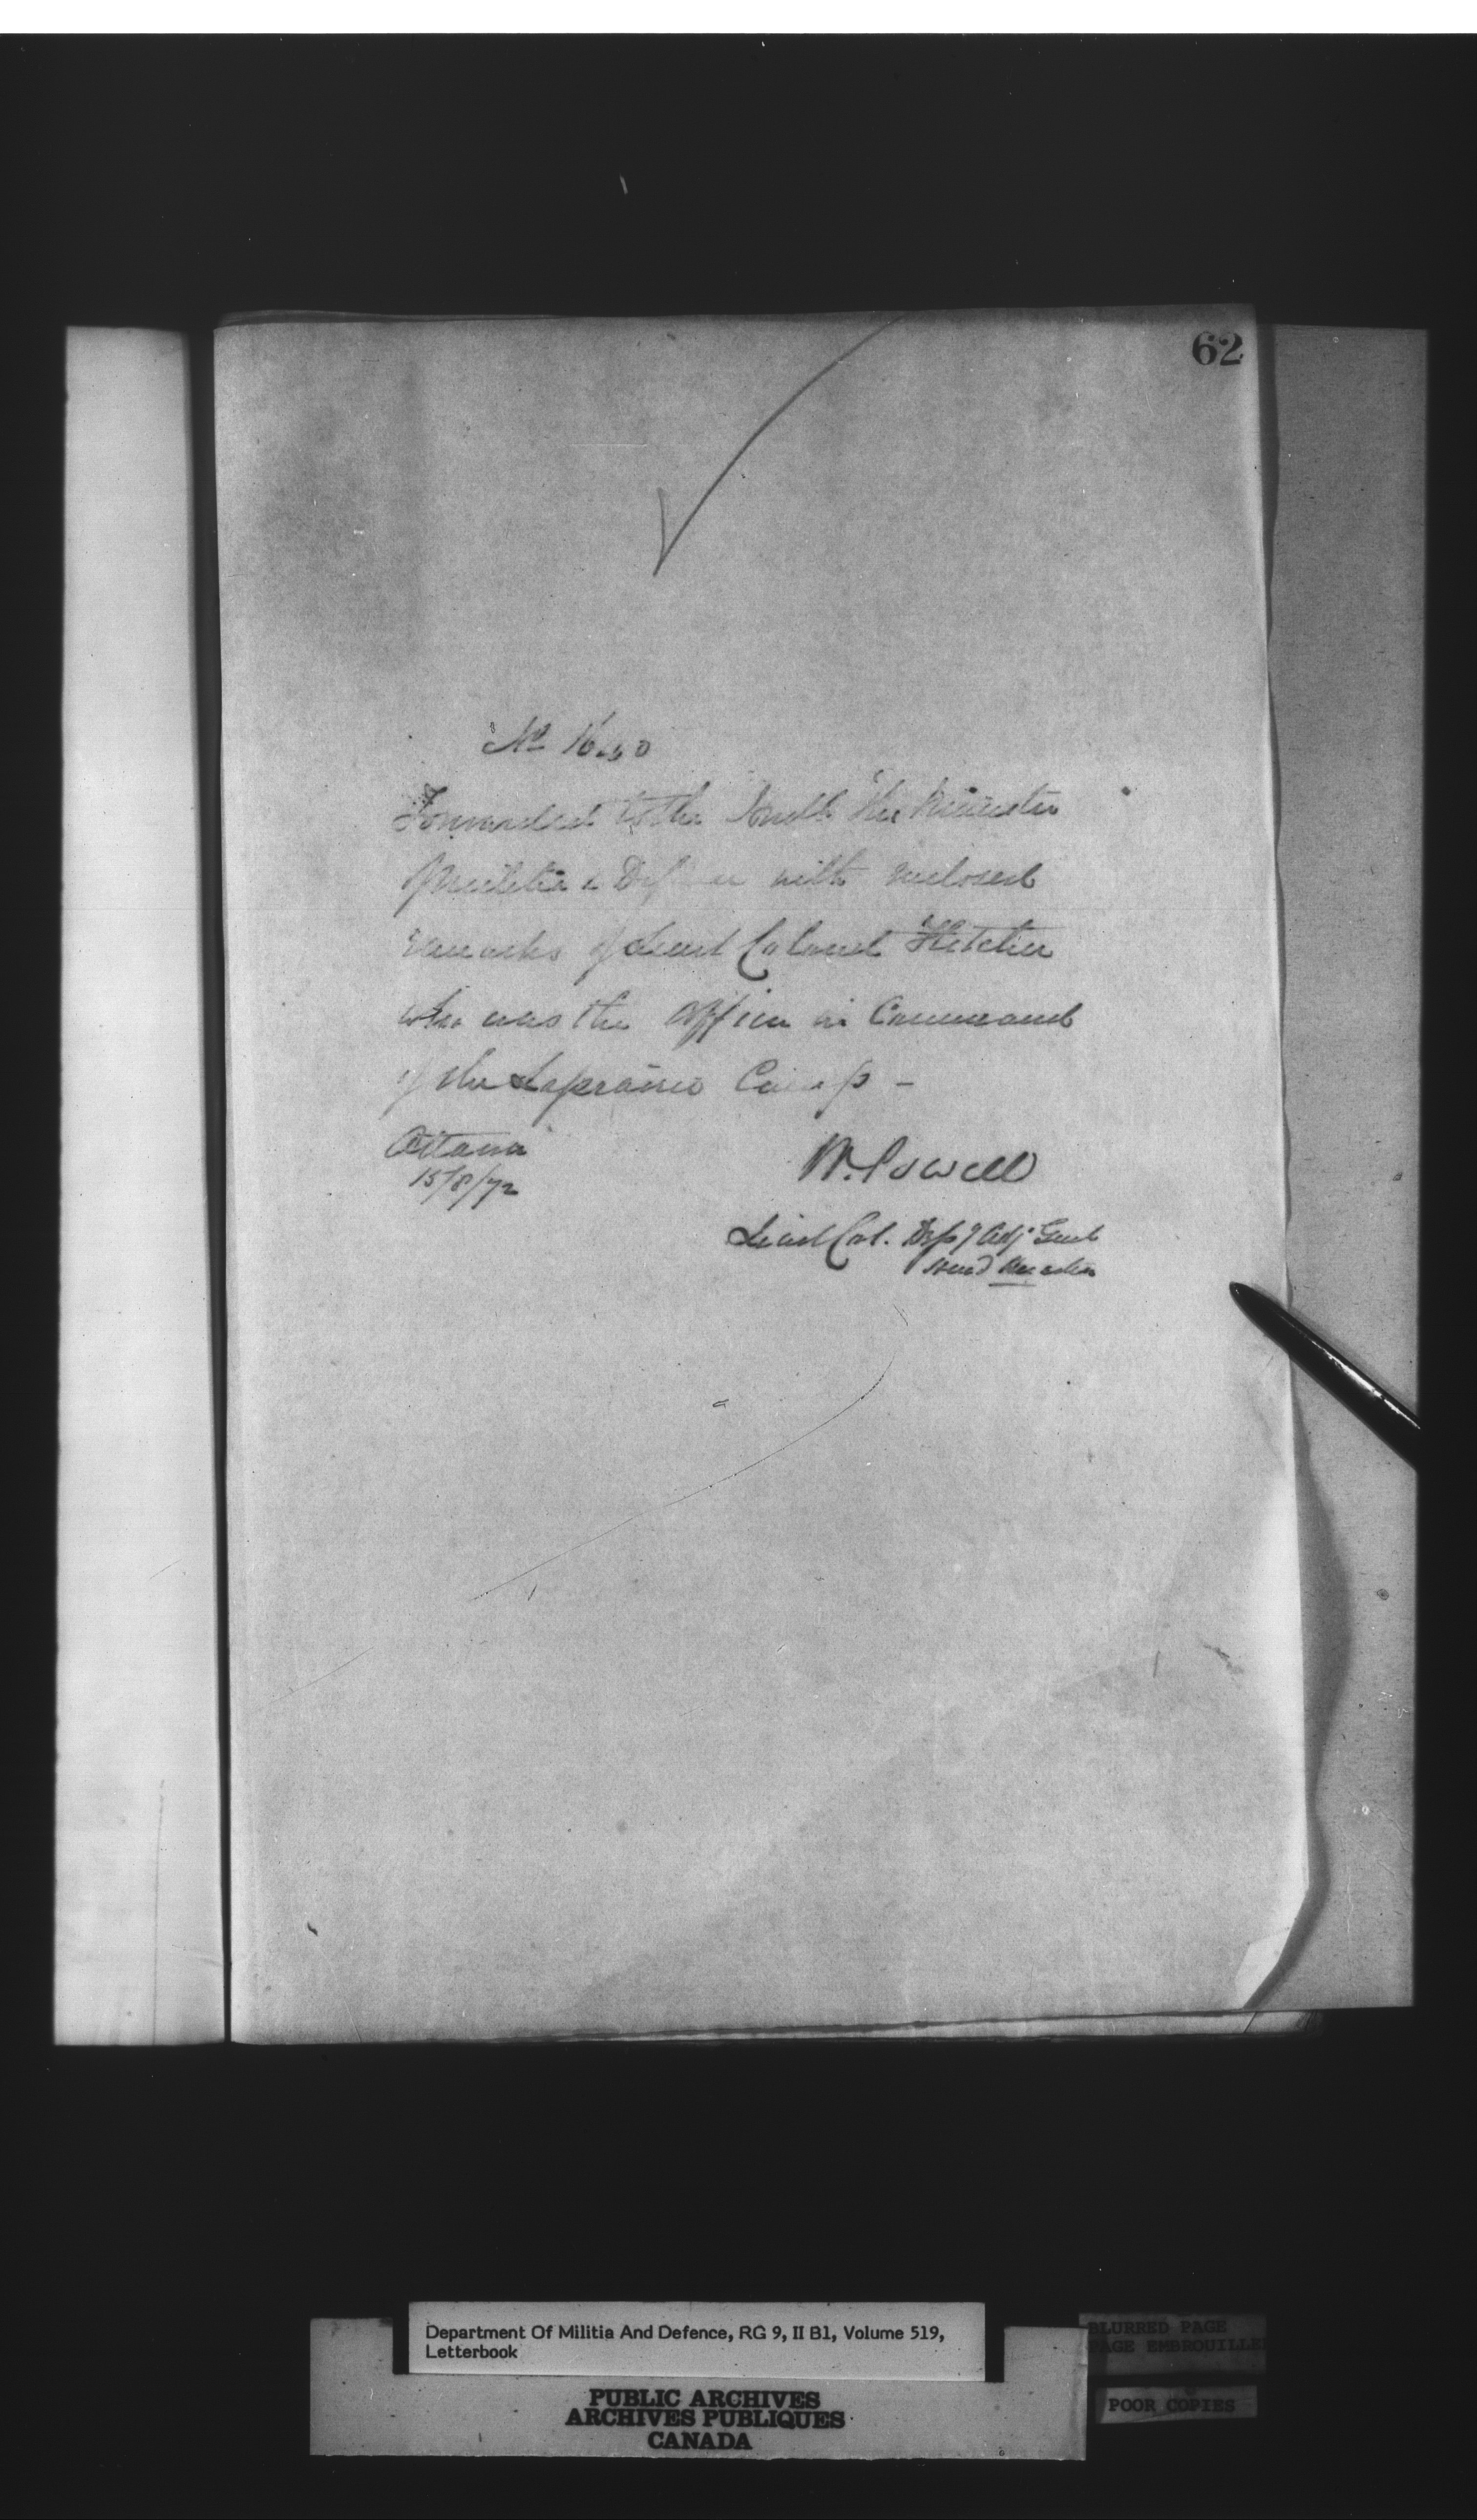 62
No
Forwarded to the Honble the Minister
of Militia & Defence with enclosed
remarks of Lieut Colonel Fletcher
who was the Officer in Command
of the Laprairie Camp -
Ottawa
15/8/72
W. Powell
Lieut Col. Depy Adj Genl
Head Quarters
Department Of Militia And Defence, RG 9, II B1, Volume 519,
Letterbook
PUBLIC ARCHIVES
ARCHIVES PUBLIQUES
CANADA
BLURRED PAGE
PAGE EMBROUILLE
POOR COPIES